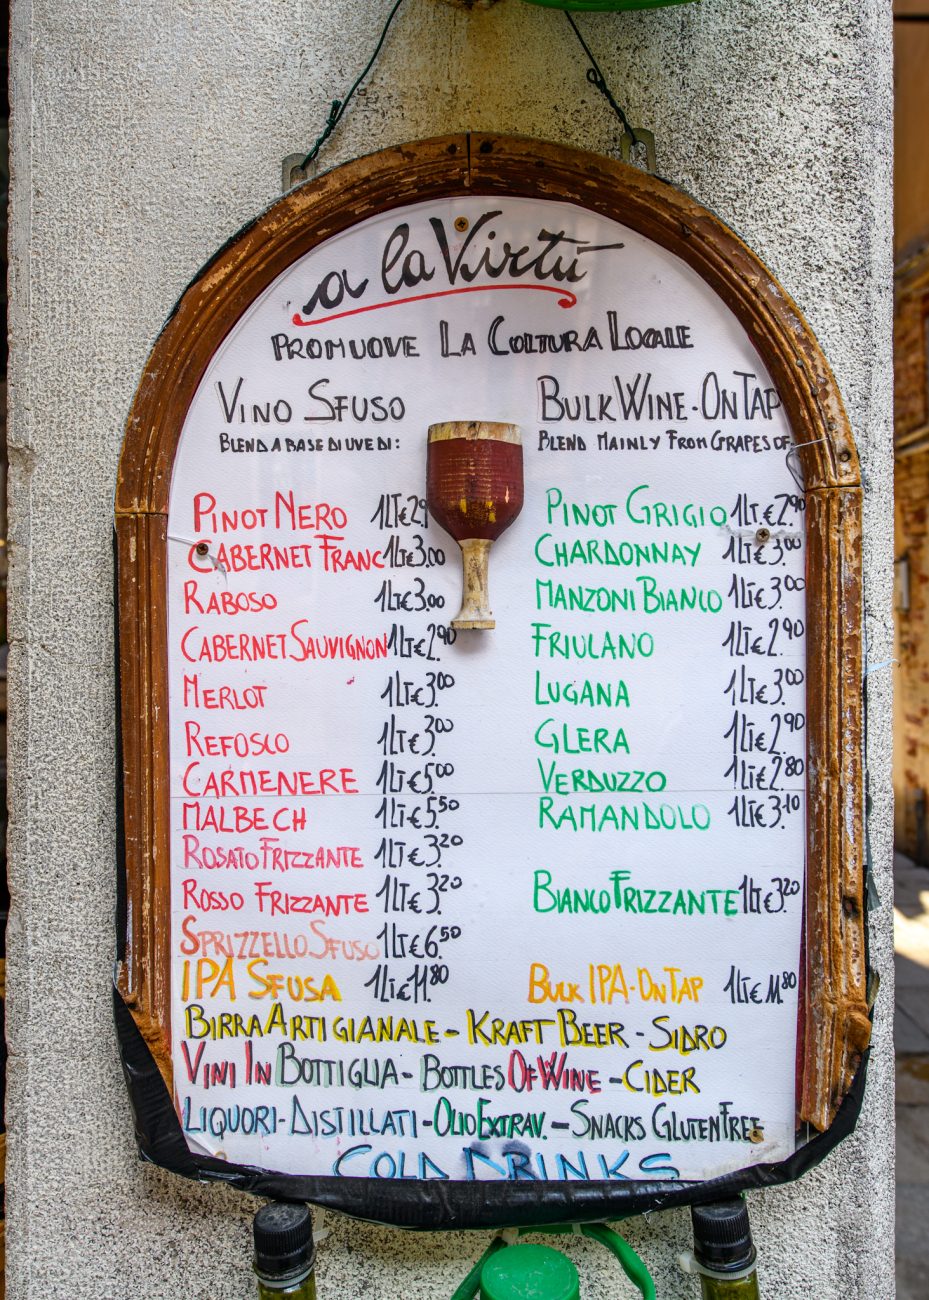 a la Virtù
PROMUOVE LA COLTURA LOCALE
VINO SFUSO
BLEND A BASE DI UVE DI:
BULK WINE-ON TAP
BLEND MAINLY FROM GRAPES OF
PINOT NERO 1LT€2,9
CABERNET FRANC 1LT€3,00
RABOSO 1LT€3,00
CABERNET SAUVIGNON 1LT€2,90
MERLOT 1LT€3,00
REFOSCO 1LT€3,00
CARMENERE 1LT€5,00
MALBECH 1LT€5,50
ROSATO FRIZZANTE 1LT€3,20
ROSSO FRIZZANTE 1LT€3,20
SPRIZZELLO SFUSO 1LT€6,50
IPA SFUSA 1LT€11,80
PINOT GRIGIO 1LT€2,90
CHARDONNAY 1LT€3,00
MANZONI BIANCO 1LT€3,00
FRIULANO 1LT€2,90
LUGANA 1LT€3,00
GLERA 1LT€2,90
VERDUZZO 1LT€2,80
RAMANDOLO 1LT€3,10
BIANCO FRIZZANTE 1LT€3,20
BULK IPA-ON TAP 1LT€11,80
BIRRA ARTIGIANALE - KRAFT BEER - SIDRO
VINI IN BOTTIGLIA - BOTTLES OF WINE - CIDER
LIQUORI-DISTILLATI-OLIO EXTRAV. - SNACKS GLUTEN FREE
COLD DRINKS